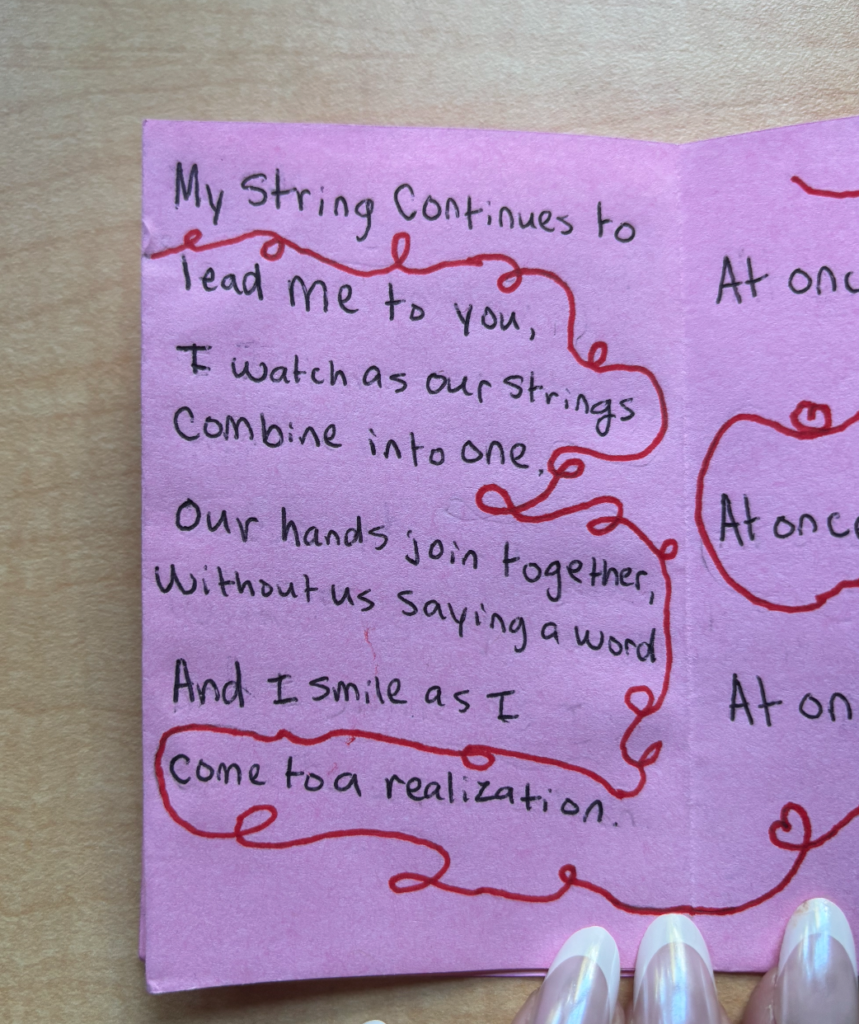 My String Continues to
lead me to you,
I watch as our strings
Combine into one.
Our hands join together,
Without us saying a word
And I smile as I
come to a realization.
At
At
At on